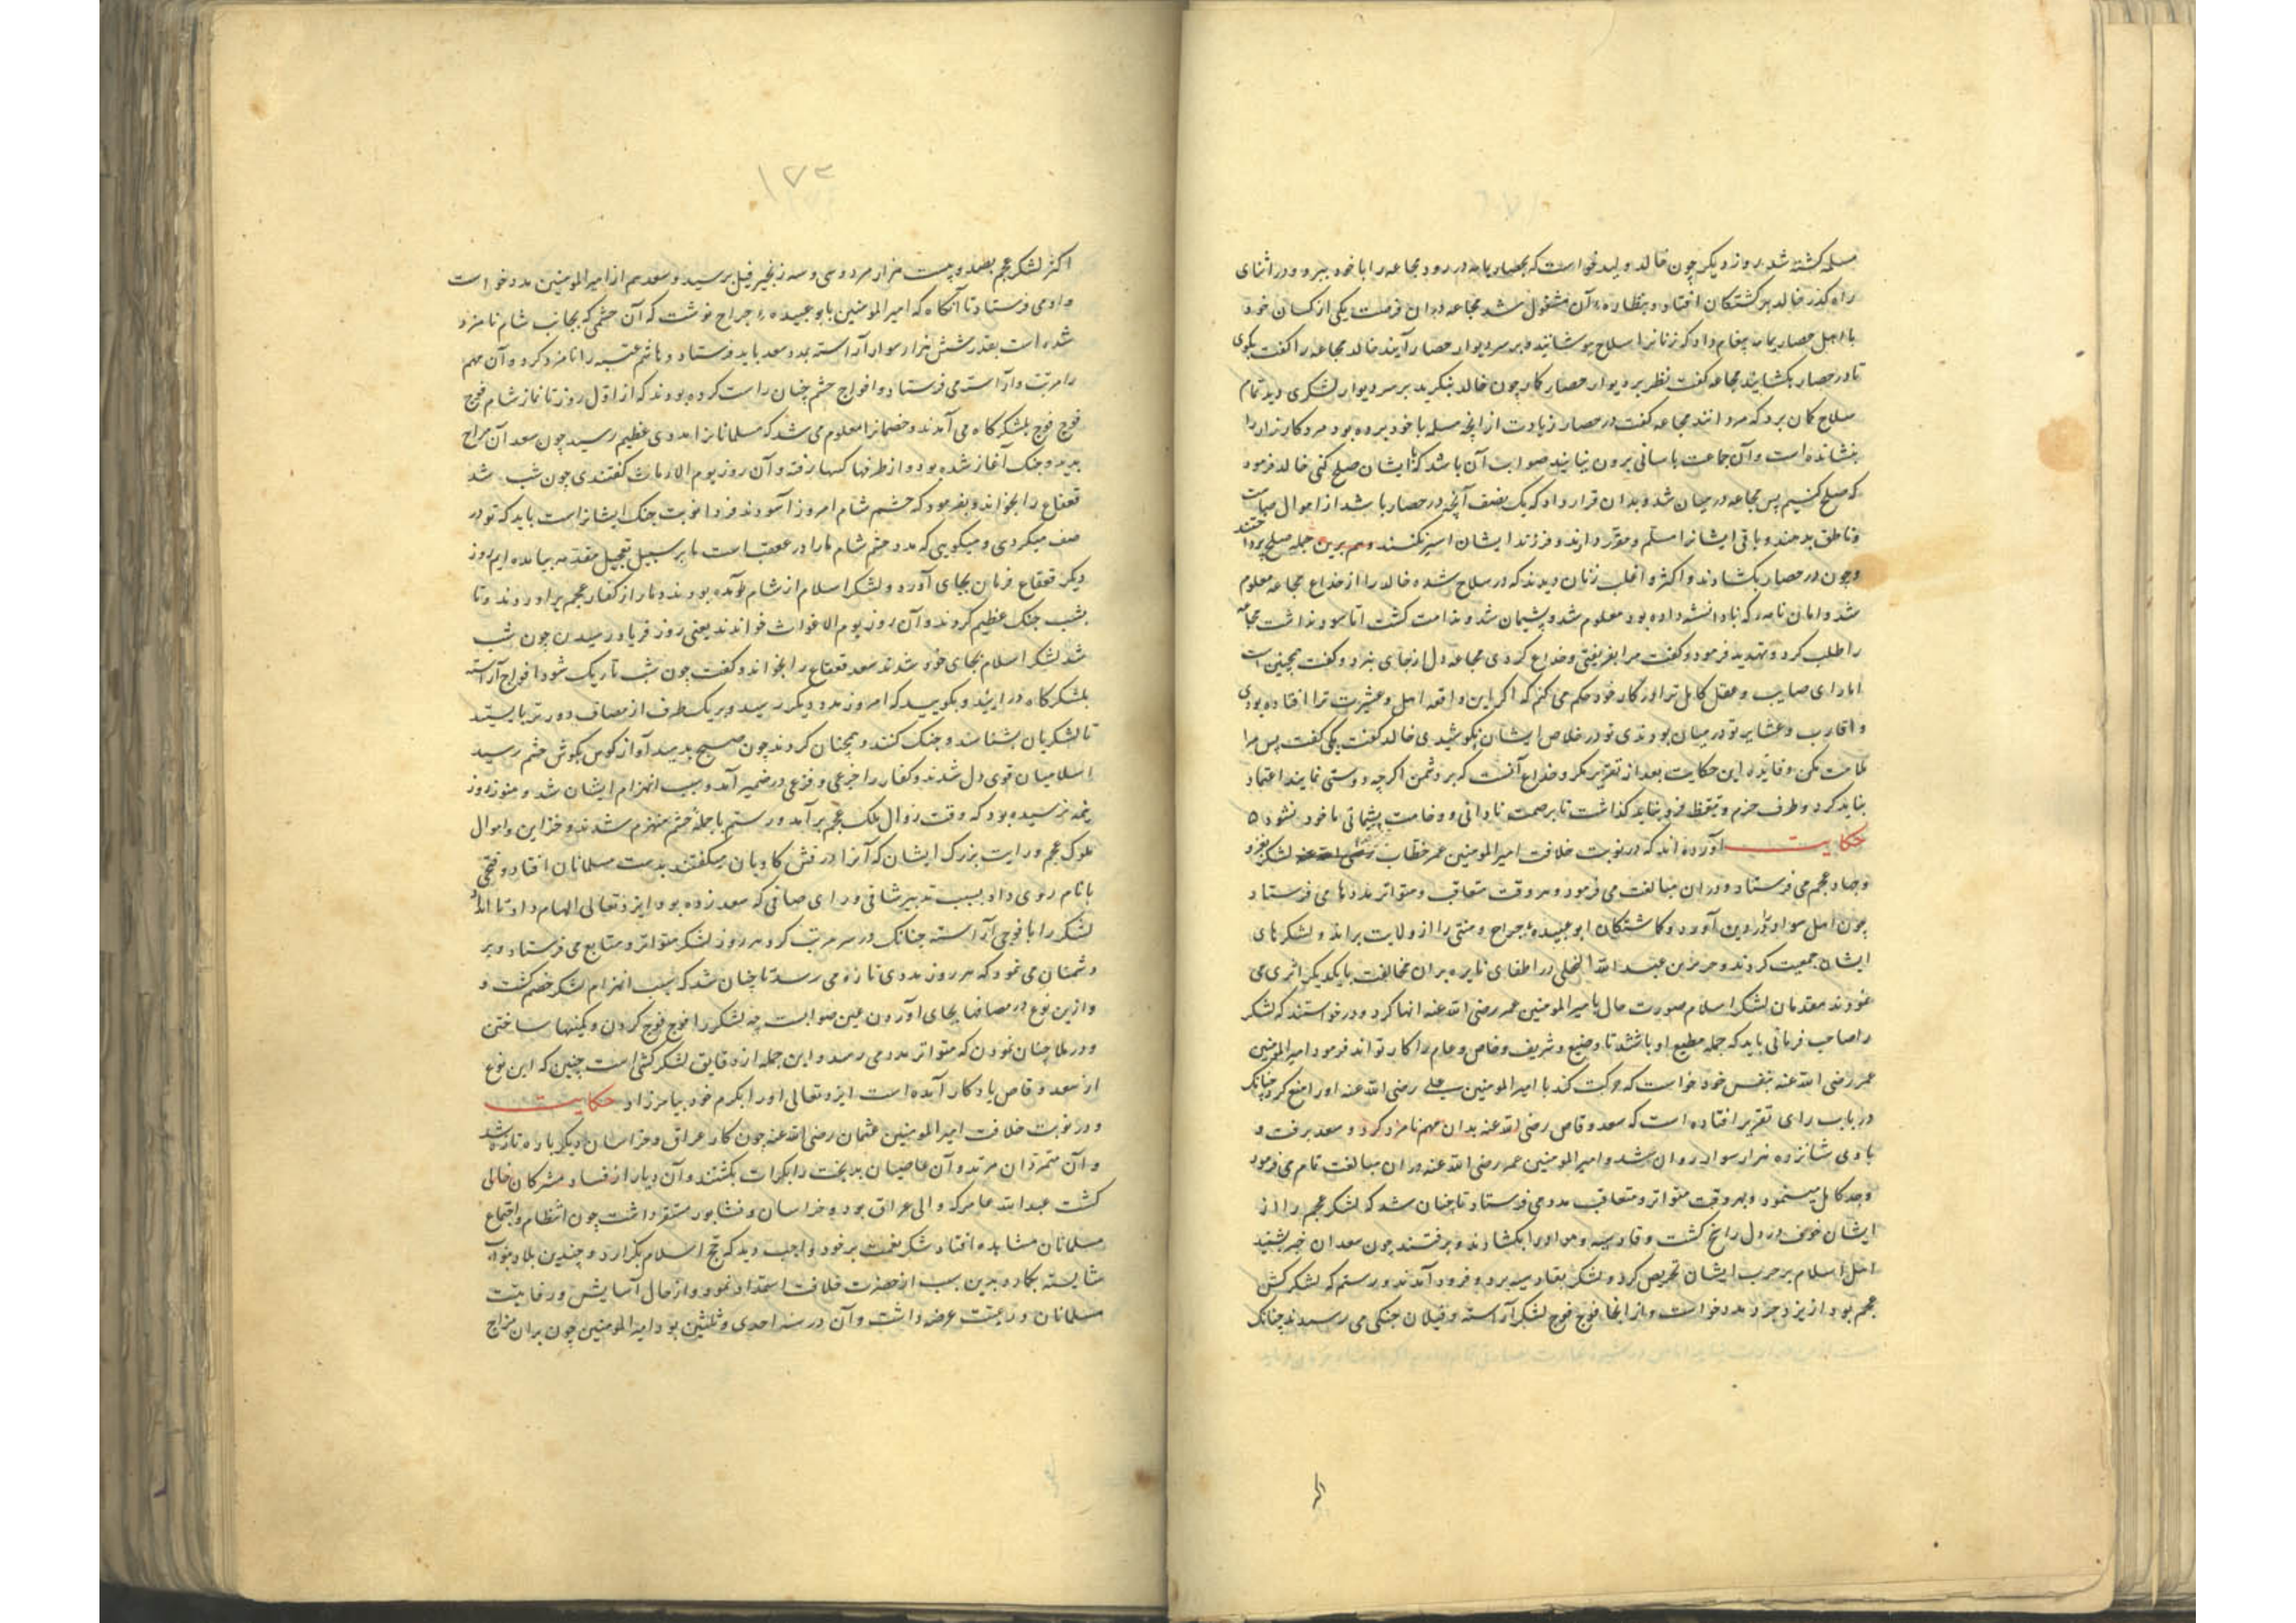 مسیلمه کشته شد روز دیکر چون خالد ولید خواست که بحصار یمامه در رود مجاعه را با خود ببرد و در اثنای
راه کذر خالد بر کشتکان افتاد و بنظاره آن مشغول شد مجاعه دران فرصت یکی از کسان خود
با اهل حصار یمامه پیغام داد که زنانرا سلاح پوشانیده بر سر دیوار حصار آیند خالد مجاعه را کفت بکوی
تا در حصار بکشایند مجاعه کفت نظر بر دیوار حصار کار چون خالد بنکرید بر سر دیوار لشکری دید تمام
سلاح کمان برد که مردانند مجاعه کفت در حصار زیادت از آنچه مسیلمه با خود برده بود مرد کارزار را
بنشانده است و آن جماعت باسانی بیرون نیایند صواب آن باشد که با ایشان صلح کنی خالد فرمود
که صلح کنیم پس مجاعه در میان شد و بدان قرار داد که یک نصف آنچه در حصار باشد از اموال صامت
و ناطق بدهند و باقی ایشانرا مسلم و مقرر دارند و فرزند ایشان اسیر نکنند و هم برین جمله صلح پرداختند
و چون در حصار بکشادند و اکثر و اغلب زنان دیدند که در سلاح شده خالد را از خداع مجاعه معلوم
شد و امان نامه که نادانسته داده بود معلوم شد و پشیمان شد و ندامت کشت اما سود نداشت مجاعه
را طلب کرد و تهدید فرمود و کفت مرا بفریفتی و خداع کردی مجاعه دل از جای نبرد و کفت همچنین است
اما رای صایب و عقل کامل ترا در کار خود حکم می کنم که اکر این واقعه اهل و عشیرت ترا افتاده بودی
و اقارب و عشایر تو در میان بودندی تو در خلاص ایشان نکوشیدی خالد کفت بکی کفت پس مرا
ملامت مکن و فایده این حکایت بعد از تقریر مکر و خداع آنست که بر دشمن اکرچه دوستی نماید اعتماد
نباید کرد و طرف حزم و تیقظ فرو نباید کذاشت تا برصمت نادانی و وخامت پشیمانی ماخود نشود ۵
حکایت آورده اند که در نوبت خلافت امیر المومنین عمر خطاب رضی الله عنه لشکر بغزو
و جهاد عجم می فرستاد و دران مبالغت می فرمود و هر وقت متعاقب و متواتر مددها می فرستاد
چون اهل سواد روی بدین آورد و کماشتکان ابو عبیده جراح و مثنی را از ولایت براند و لشکرهای
ایشان جمعیت کردند و جریر بن عبد الله البجلی در اطفای نایره بران مخالفت با یکدیکر اثری می
نمودند مقدمان لشکر اسلام صورت حال بامیر المومنین عمر رضی الله عنه انها کرد و درخواستند که لشکر
را صاحب فرمانی باید که جمله مطیع او باشند تا وضیع و شریف و خاص و عام را کار تواند فرمود امیر المومنین
عمر رضی الله عنه بنفس خود خواست که حرکت کند با امیر المومنین علی رضی الله عنه اورا منع کرد چنانک
در باب رای تقریر افتاده است که سعد وقاص رضی الله عنه بدان مهم نامزد کرد و سعد برفت و
با وی شانزده هزار سوار روان شد و امیر المومنین عمر رضی الله عنه دران مبالغت تمام می فرمود
و جد کامل مینمود و بهر وقت متواتر و متعاقب مدد می فرستاد تا چنان شد که لشکر عجم را از
ایشان خوف در دل راسخ کشت و قادسیه و سواد را بکشادند و برفتند چون سعد ان خبر بشنید
اهل اسلام بر حرب ایشان تحریض کرد و لشکر بقادسیه برد و فرود آمدند و رستم که لشکر کش
عجم بود از یزدجرد مدد خواست و از انجا فوج فوج لشکر آراسته و فیلان جنکی می رسیدند چنانک
۱۷۳
اکثر لشکر عجم بصد و بیست هزار مرد و سی و سه زنجیر فیل برسید و سعد هم از امیر المومنین مدد خواست
و ادمی فرستاد تا آنکاه که امیر المومنین بابو عبیده جراح نوشت که آن حشمی که بجانب شام نامزد
شده است بقدر شش هزار سوار آراسته بمدد سعد باید فرستاد و هاشم عتبه را نامزد کرد و آن مهم
را مرتب و آراسته می فرستاد و افواج حشم چنان راست کرده بودند که از اول روز تا نماز شام فوج
فوج فوج بلشکرکاه می آمدند و خصمانرا معلوم می شد که مسلمانانرا مددی عظیم رسید چون سعد آن مزاج
بدید و جنک آغاز شده بود و از طرفها کسها رفته و آن روز یوم الارماث کفتندی چون شب شد
قعقاع را بخواند و بفرمود که حشم شام امروز آسودند فردا نوبت جنک ایشانراست باید که تو در
صف میکردی و میکویی که مدد حشم شام مارا در عقب است ما بر سبیل تعجیل مقدمه بیامده ایم روز
دیکر قعقاع فرمان بجای آورد و لشکر اسلام از شام بآمده بودند دمار از کفار عجم برآوردند و تا
بشب جنک عظیم کردند و آن روز یوم الاغواث خواندند یعنی روز فریاد رسیدن چون شب
شد لشکر اسلام بجای خود شدند سعد قعقاع را بخواند و کفت چون شب تاریک شود افواج آراسته
بلشکرکاه در آیید و بکویید که امروز مدد دیکر رسید و بر یک طرف از مصاف دورتر بایستید
تا لشکریان بشناسند و جنک کنند و همچنان کردند چون صبح بدمید آواز کوس بکوش حشم رسید
اسلامیان قوی دل شدند و کفار را جزعی و فزعی در ضمیر آمد و سبب انهزام ایشان شد و هنوز روز
بنیمه نرسیده بود که وقت زوال ملک عجم برآمد و رستم با جمله حشم منهزم شدند و خزاین و اموال
ملوک عجم و رایت بزرک ایشان که آنرا درفش کاویان میکفتند بدست مسلمانان افتاد و فتحی
بانام روی داد بسبب تدبیر شافی و رای صافی که سعد زده بود ایزد تعالی الهام داد تا امداد
لشکر را با فوجی آراسته چنانک در سر مرتب کرد هر روز لشکر متواتر و متتابع می فرستاد و بر
دشمنان می نمود که هر روز مددی تازه می رسد تا چنان شد که سبب انهزام لشکر خصم کشت و
و ازین نوع در مصافها بجای آوردن عین صوابست چه لشکر را فوج فوج کردن و کمینها ساختن
و در ملا چنان نمودن که متواتر مدد می رسد و این جمله از دقایق لشکرکشی است چنین که این نوع
از سعد وقاص یادکار آمده است ایزد تعالی اورا بکرم خود بیامرزاد حکایت
و در نوبت خلافت امیر المومنین عثمان رضی الله عنه چون کار عراق و خراسان دیکر باره تازه شد
و آن متمردان مرتد و آن عاصیان بدبخت را بکرات بکشتند و آن دیار از فساد مشرکان خالی
کشت عبد الله عامر که والی عراق بود و خراسان و نشابور مستقر داشت چون انتظام و اجتماع
مسلمانان مشاهده افتاد شکر نعمت بر خود واجب دید که حج اسلام بکزارد و چندین بلاد
شایسته بکار و بدین سبب از حضرت خلافت استمداد نمود و از حال آسایش و رفاهیت
مسلمانان و رعیت عرضه داشت و آن در سنه احدی و ثلثین بود امیر المومنین چون بران مزاج